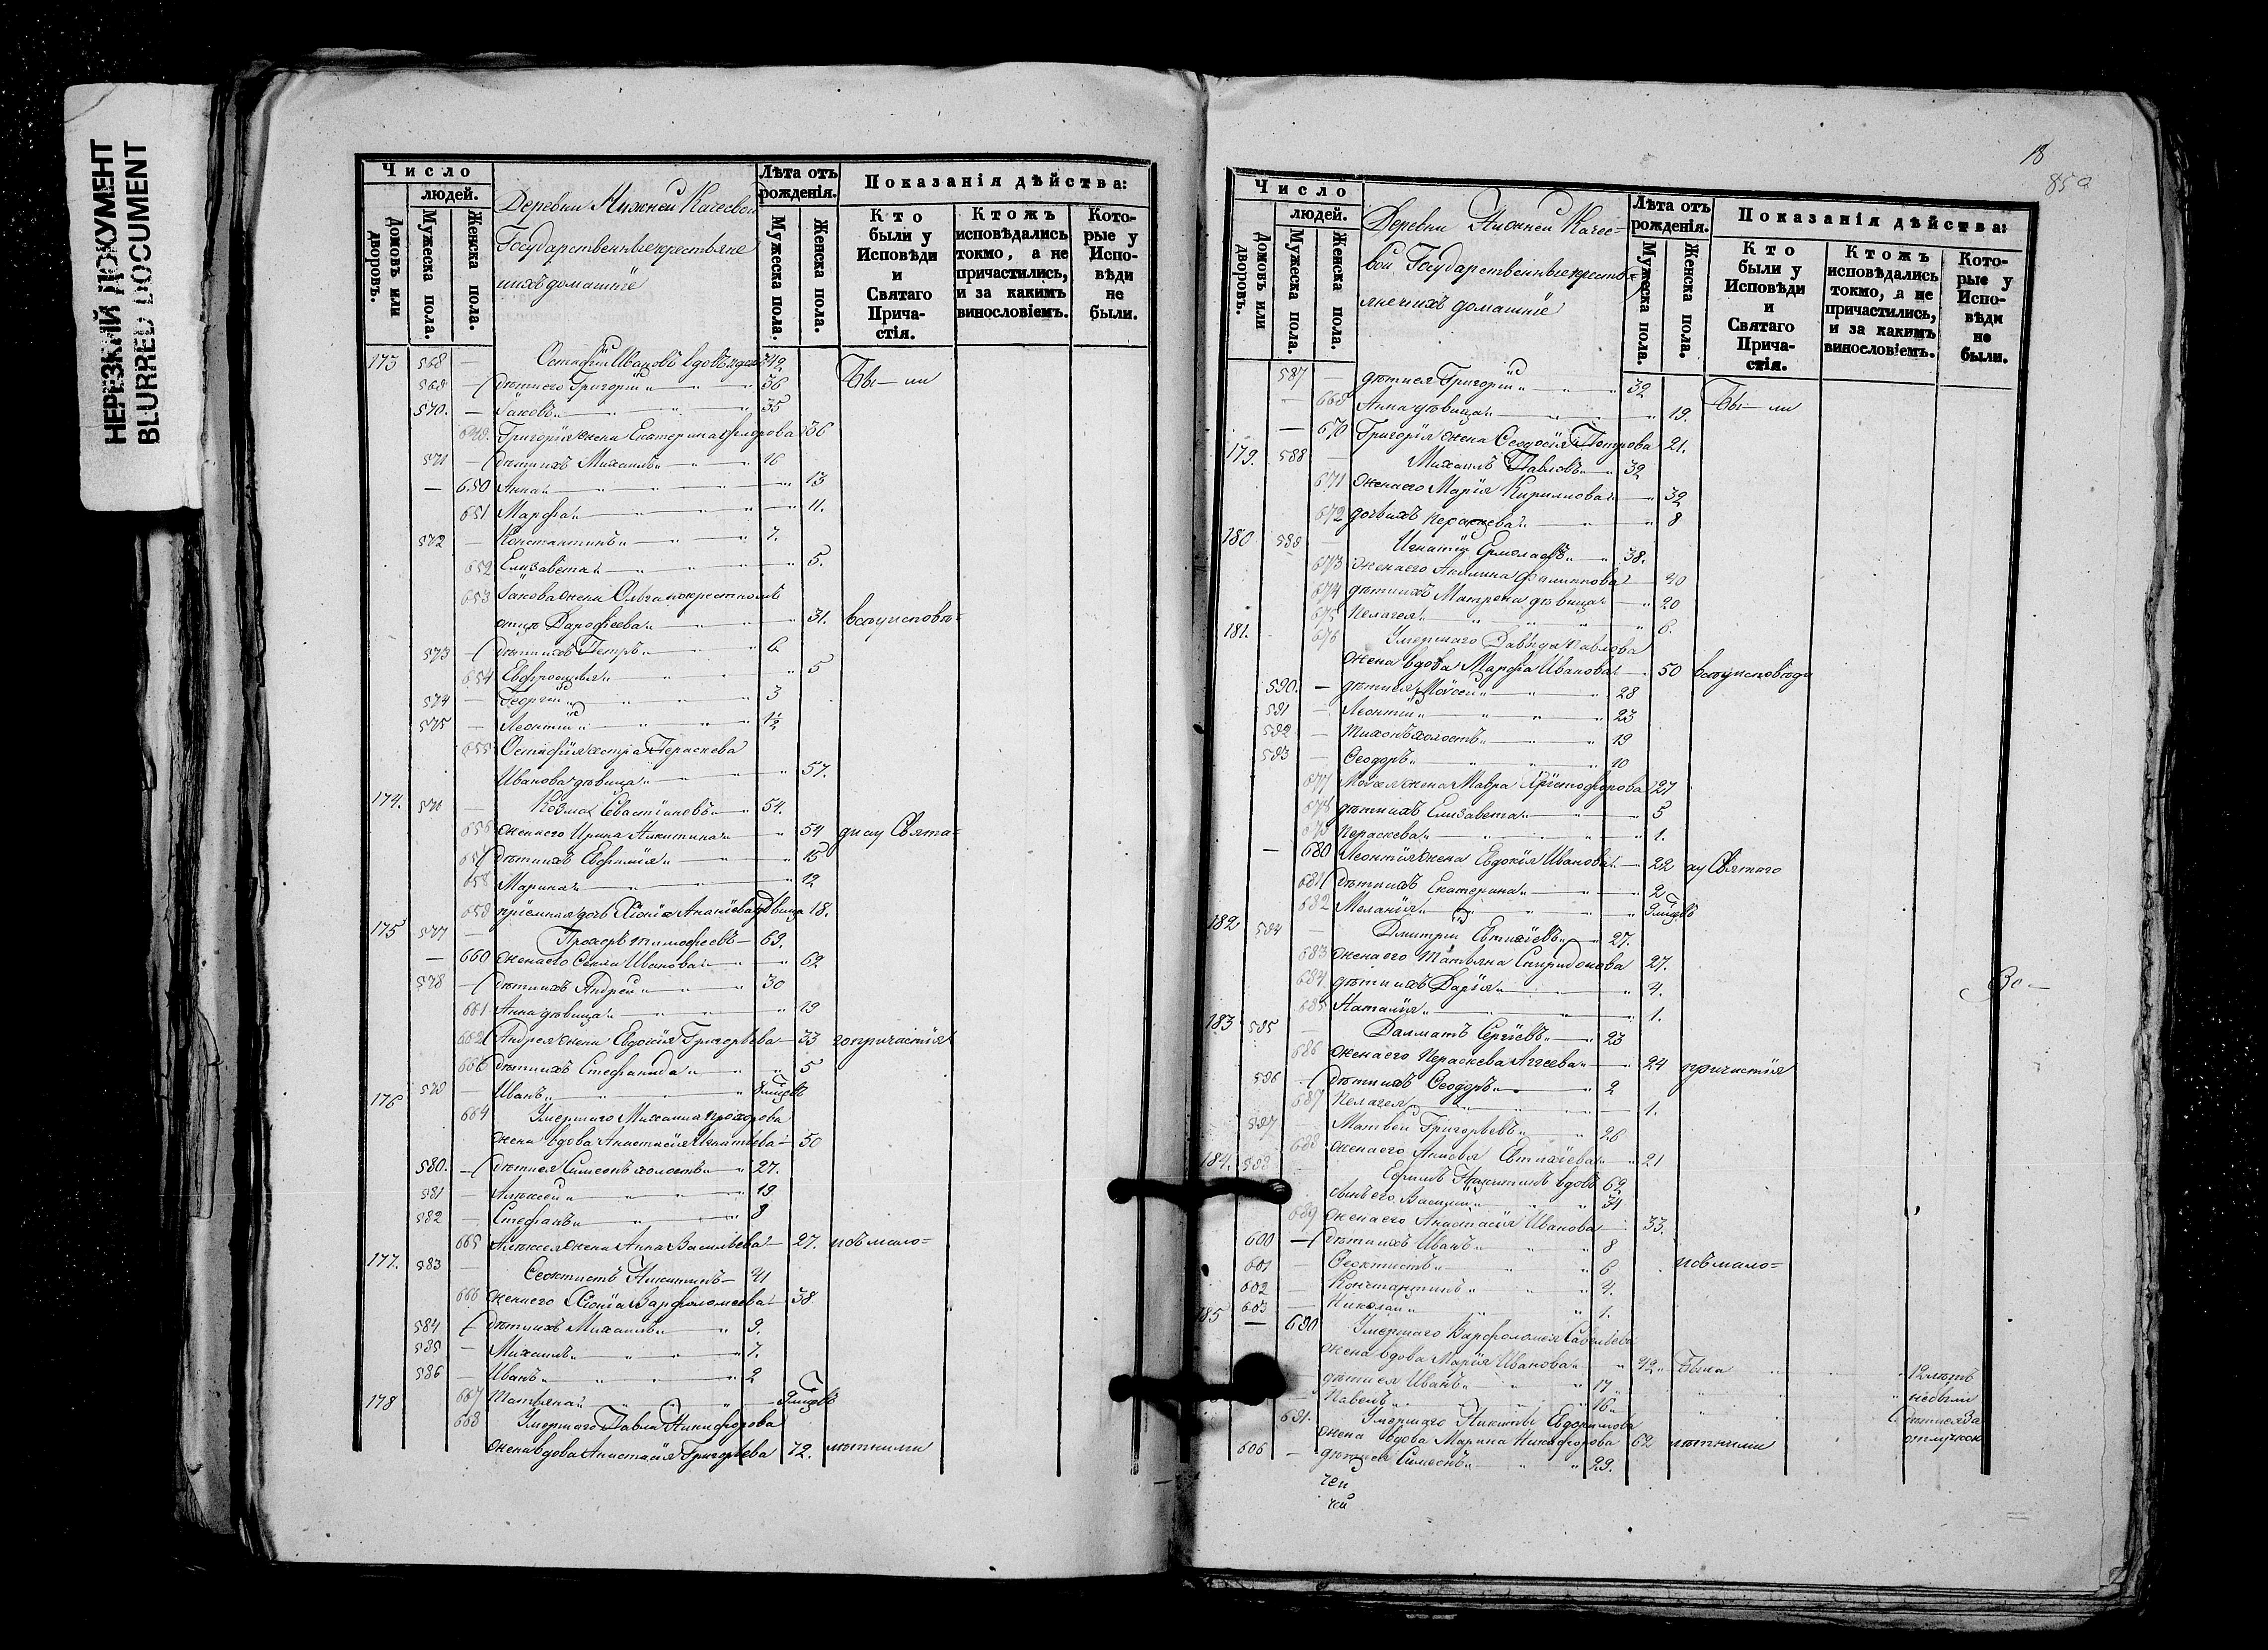 НЕРЕЗКИЙ ДОКУМЕНТ
BLURRED DOCUMENT
Число
людей.
Домовъ или дворовъ.
Мужеска пола.
Женска пола.
Деревни Нижней Качеевой
Государственные крестьяне
и ихъ домашніе
Лѣта отъ рожденія.
Мужеска пола.
Женска пола.
Показанія дѣйства:
Кто были у Исповѣди и Святаго Причастія.
Ктожъ исповѣдались токмо, а не причастились, и за какимъ винословіемъ.
Которые у Исповѣди не были.
173 568 — Остафій Ивановъ вдовъ
569 — дѣти его Григорій 36 Бы—ли
570. — Іаковъ 35
649. Григорія жена Екатерина Ѳедорова 36
571 — дѣти ихъ Михаилъ 16
— 650 Анна 13
651 Марфа 11.
572 — Константинъ 7.
652 Елизавета 5.
653 Іакова жена Ольга по крестномъ
отцѣ Дарофеева 31. въ исповѣ=
573 — дѣти ихъ Петръ 6.
654 Евфросинья 5
574 — Георгій 3
575 — Леонтій 1/2
655 Остафія сестра Пераскева
Иванова дѣвица 57.
174. 576 — Козма Севастіановъ 54.
656 жена его Ирина Никитина 54 ди и у Свята=
657 дѣти ихъ Евфимія 15
658 Марина 12
659 пріемная дочь Хіонія Ананіева дѣвица 18.
175 577 — Прохоръ Тимофеевъ 69.
— 660 жена его Секли Иванова 62
578 — дѣти ихъ Андрей 30
661 Анна дѣвица 19
662 Андрея жена Евдокія Григорьева 33 го причастія
666 дѣти ихъ Стефанида 5
579 Иванъ
176 664 Умершаго Михаила Прохорова
жена вдова Анастасія Игнатьева 50
580. — дѣти ея Симеонъ холостъ 27.
581 — Алексей 19
582 — Стефанъ 8
665 Алексея жена Анна Васильева 27. по мало=
177. 583 — Феоктистъ Никитинъ 41
666 жена его Хіонія Варфоломеева 38
584 дѣти ихъ Михаилъ 9.
585 — Михаилъ 7.
586 — Иванъ 2
667 Татьяна
178 668 Умершаго Павла Никифорова
жена вдова Анастасія Григорьева 72. лѣтними
18
859
Число
людей.
Домовъ или дворовъ.
Мужеска пола.
Женска пола.
Деревни Нижней Качее=
вой Государственные кресть=
яне и ихъ домашніе
Лѣта отъ рожденія.
Мужеска пола.
Женска пола.
Показанія дѣйства:
Кто были у Исповѣди и Святаго Причастія.
Ктожъ исповѣдались токмо, а не причастились, и за какимъ винословіемъ.
Которые у Исповѣди не были.
587 — дѣти ея Григорій 32
— 669 Анна дѣвица 19. Бы—ли
— 670 Григорія жена Феодосія Петрова 21.
179. 588 — Михаилъ Павловъ 32
671 жена его Марія Кирилова 32
672 дочь ихъ Пераскева 8
180 589 — Игнатій Ермолаевъ 38.
673 жена его Акилина Филиппова 40
674 дѣти ихъ Матрена дѣвица 20
675 Пелагея 6.
181. 676 Умершаго Давыда Павлова
жена вдова Марфа Иванова 50 въ исповѣди
590. — дѣти ея Моисей 28
591 — Леонтій 23
592 — Тихонъ холостъ 19
593 — Феодоръ 10
677 Моисея жена Мавра Христофорова 27
678 дѣти ихъ Елизавета 5
679 Пераскева 1.
— 680 Леонтія жена Евдокія Иванова 22 и у Святаго
681 дѣти ихъ Екатерина 2
682 Меланія
182 594 — Дмитрій Евтихіевъ 27.
683 жена его Татьяна Спиридонова 27.
684 дѣти ихъ Дарія 4.
685 Наталія 1.
183 595 — Далматъ Сергіевъ 23
686 жена его Пераскева Аггеева 24 причастія
596 — дѣти ихъ Феодоръ 2
687 Пелагея 1.
597 — Матвей Григорьевъ 26
688 жена его Евтихіева 21
184. 598 — Ефимъ Никитинъ вдовъ 62
сынъ его Василій 34
689 жена его Анастасія Иванова 33.
600 — дѣти ихъ Иванъ 8
601 — Феоктистъ 6 по мало=
602 — Константинъ 4.
603 — Николай 1.
185 — 690 Умершаго Варфоломея Савельева
жена вдова Марія Иванова 42 Была 12 лѣтъ
дѣти ея Иванъ 17 не были
Павелъ 16 дѣти ея за
691. Умершаго Никиты Евдокимова
жена вдова Марина Никифорова 62 лѣтними отлучкою
606 — дѣти ея Симеонъ 29.